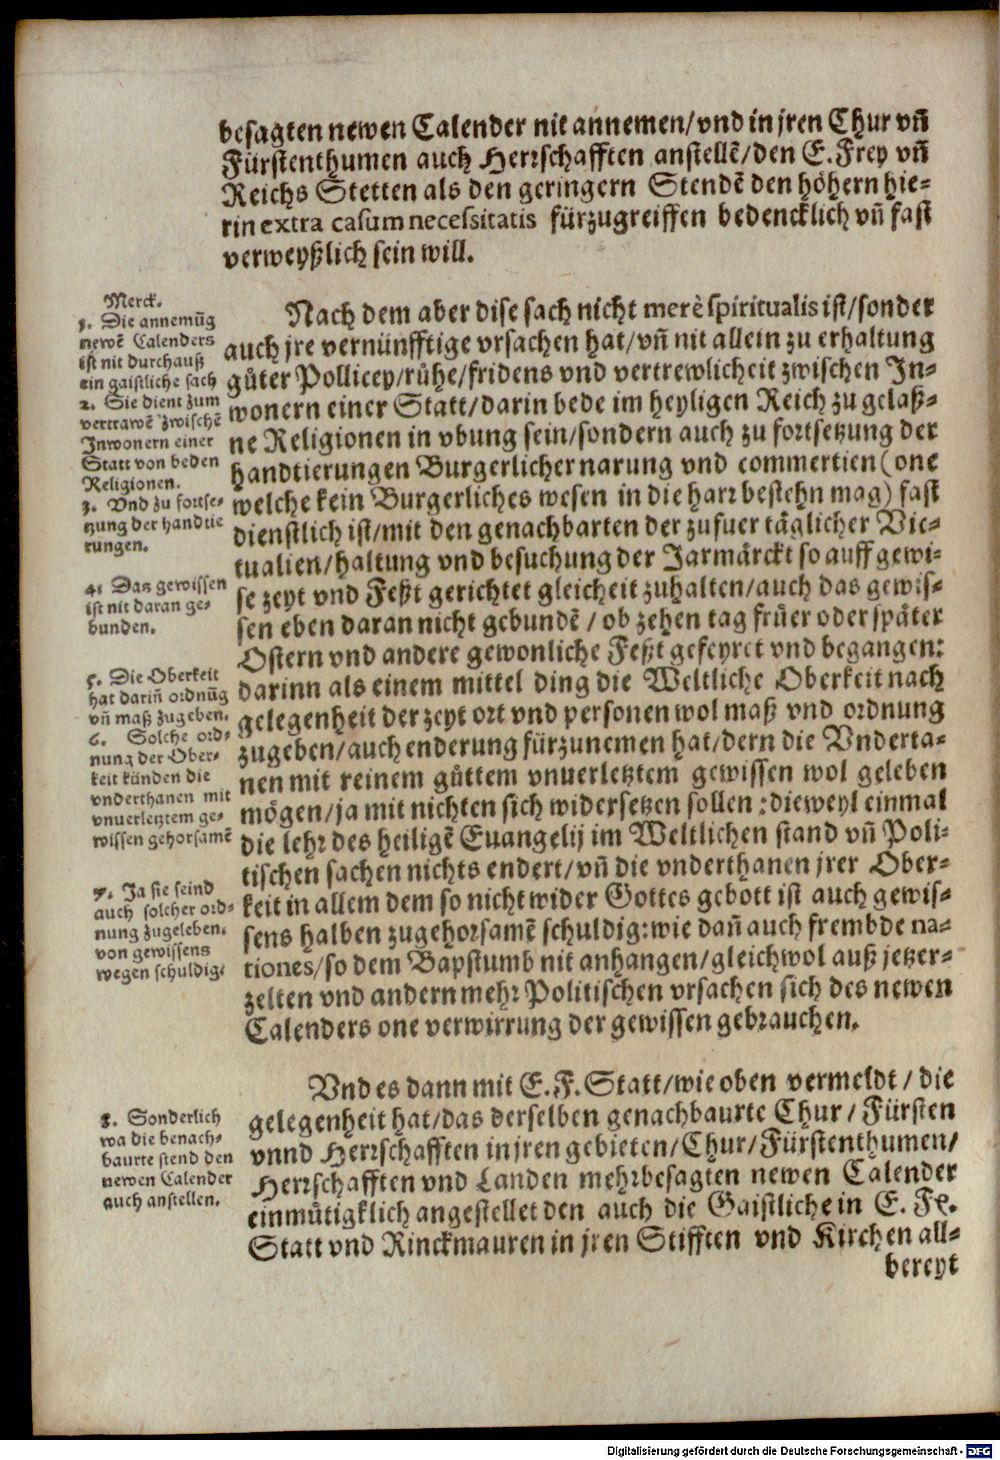 besagten newen Calender nit annemen/vnd in jren Chur vñ
Fürstenthumen auch Herrschafften anstellē/den E. Frey vñ
Reichs Stetten als den geringern Stendē den höhern hie-
rin extra casum necessitatis fürzugreiffen bedencklich vñ fast
verweyßlich sein will.
Nach dem aber dise sach nicht merè spiritualis ist/sonder
auch jre vernünfftige vrsachen hat/vñ nit allein zu erhaltung
gůter Pollicey/růhe/fridens vnd vertrewlicheit zwischen In-
wonern einer Statt/darin bede im heyligen Reich zu gelaß-
ne Religionen in vbung sein/sondern auch zu fortsetzung der
handtierungen Burgerlicher narung vnd commertien (one
welche kein Burgerliches wesen in die harr bestehn mag) fast
dienstlich ist/mit den genachbarten der zufuer täglicher Vic-
tualien/haltung vnd besuchung der Jarmärckt so auff gewi-
se zeyt vnd Feßt gerichtet gleicheit zuhalten/auch das gewis-
sen eben daran nicht gebundē / ob zehen tag früer oder später
Ostern vnd andere gewonliche Feßt gefeyret vnd begangen:
darinn als einem mittel ding die Weltliche Oberkeit nach
gelegenheit der zeyt ort vnd personen wol maß vnd ordnung
zugeben/auch enderung fürzunemen hat/dern die Vnderta-
nen mit reinem gůttem vnuerletztem gewissen wol geleben
mögen/ja mit nichten sich widersetzen sollen: dieweyl einmal
die lehr des heiligē Euangelij im Weltlichen stand vñ Poli-
tischen sachen nichts endert/vñ die vnderthanen jrer Ober-
keit in allem dem so nicht wider Gottes gebott ist auch gewis-
sens halben zugehorsamē schuldig: wie dañ auch frembde na-
tiones/so dem Bapstumb nit anhangen/gleichwol auß jetzer-
zelten vnd andern mehr Politischen vrsachen sich des newen
Calenders one verwirrung der gewissen gebrauchen.
Vnd es dann mit E. F. Statt/wie oben vermeldt / die
gelegenheit hat/das derselben genachbaurte Chur / Fürsten
vnnd Herrschafften in jren gebieten/Chur/Fürstenthumen/
Herrschafften vnd Landen mehrbesagten newen Calender
einmütigklich angestellet den auch die Gaistliche in E. Fe.
Statt vnd Rinckmauren in jren Stifften vnd Kirchen all-
bereyt
Merck.
1. Die annemūg
newē Calenders
ist nit durchauß
ein gaistliche sach
2. Sie dient zum
vertrawē zwischē
Inwonern einer
Statt von beden
Religionen.
3. Vnd zu fortse-
tzung der handtie
rungen.
4. Das gewissen
ist nit daran ge-
bunden.
5. Die Oberkeit
hat dariñ ordnūg
vñ maß zugeben.
6. Solche ord-
nung der Ober-
keit künden die
vnderthanen mit
vnuerletztem ge-
wissen gehorsamē
7. Ja sie seind
auch solcher ord-
nung zugeleben.
von gewissens
wegen schuldig.
8. Sonderlich
wa die benach-
baurte stend den
newen Calender
auch anstellen.
Digitalisierung gefördert durch die Deutsche Forschungsgemeinschaft - DFG